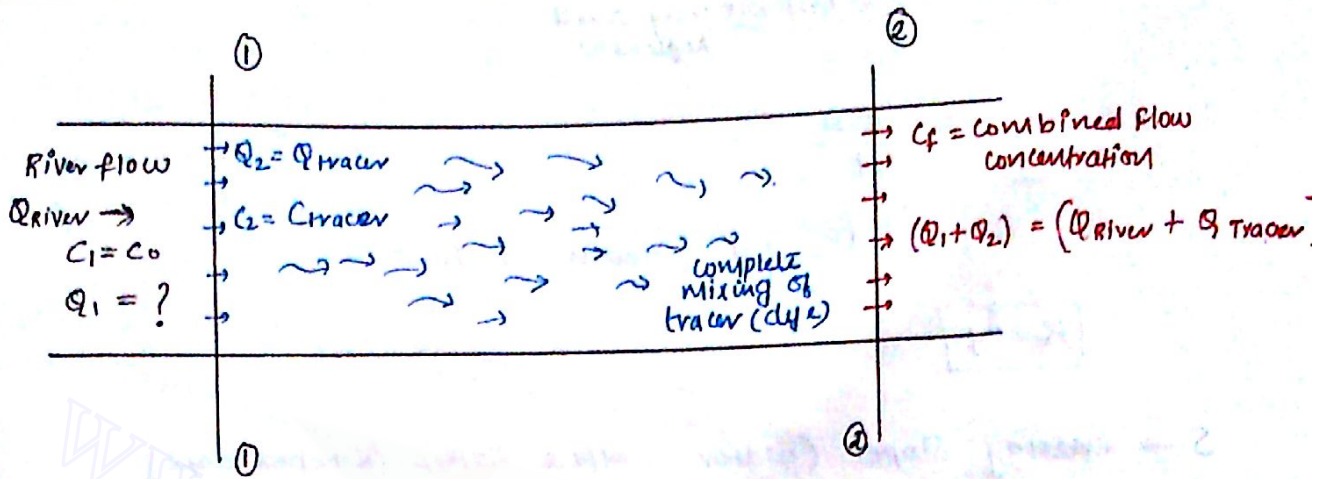 ①
②
River flow
QRiver →
C₁ = C₀
Q₁ = ?
Q₂ = Qtracer
C₂ = Ctracer
complete
mixing of
tracer (dye)
Cf = combined flow
concentration
(Q₁+Q₂) = (QRiver + QTracer
①
②